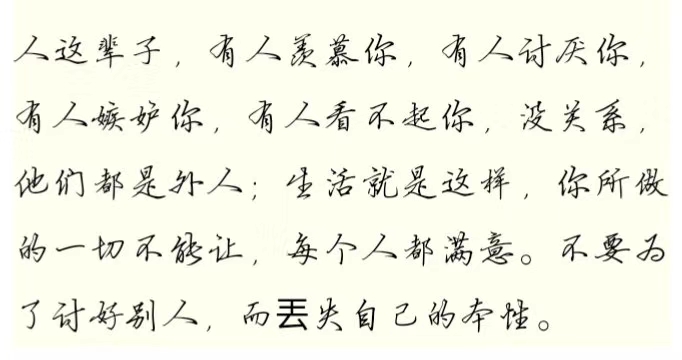 人这辈子，有人羡慕你，有人讨厌你，
有人嫉妒你，有人看不起你，没关系，
他们都是外人；生活就是这样，你所做
的一切不能让，每个人都满意。不要为
了讨好别人，而丢失自己的本性。